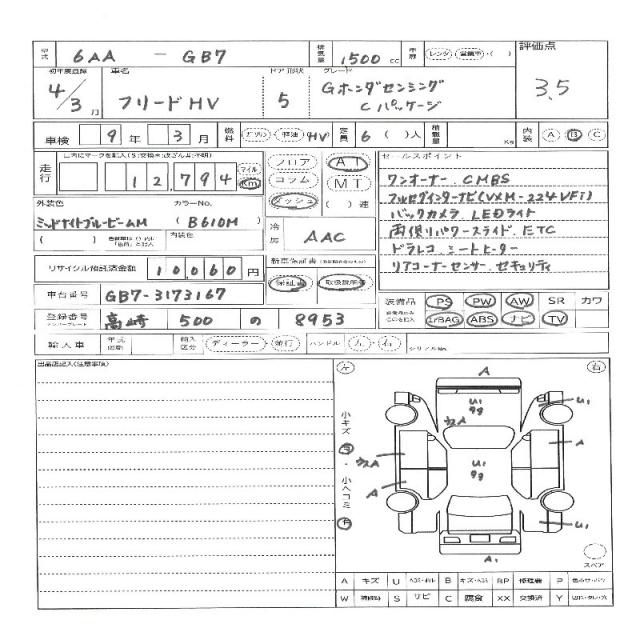 型式 6AA - GB7 排気量 1500 cc 車歴 レンタ 営業車 ( ) 評価点
初年度登録 車名 ドア形状 グレード
4/3月 フリードHV 5 Gホンダセンシング Cパッケージ 3.5
車検 9 年 3 月 燃料 ガソリン 軽油 HV 定員 6 ( )人 積載量 Kg 内装 A B C
走行 12,794 マイル Km フロア コラム ダッシュ AT MT ( )速
セールスポイント
ワンオーナー CMBS
フルセグインターナビ(VXM-224VFi)
バックカメラ LEDライト
両側パワースライド ETC
ドラレコ シートヒーター
リアコーナーセンサー セキュリティ
外装色 カラーNo.
ミッドナイトブルービームM (B610M)
( ) 内装色
冷房 AAC
リサイクル預託済金額 10,060 円 新車保証書
保証書 取扱説明書
車台番号 GB7-3173167
装備品 PS PW AW SR カワ
AirBAG ABS ナビ TV
登録番号 高崎 500 の 8953
ナンバープレート
輸入車 年式 輸入区分 ディーラー 並行 ハンドル 左 右 シリアルNo.
出品店記入(注意事項)
左 右
A
U1
99
ウスA
U1
小キズ 有・小ヘコミ 有
A
ウスA
U1
99
A
U1
A1
スペア
A キズ U B キズ・ RP P
W S サビ C 腐食 XX 交換済 Y